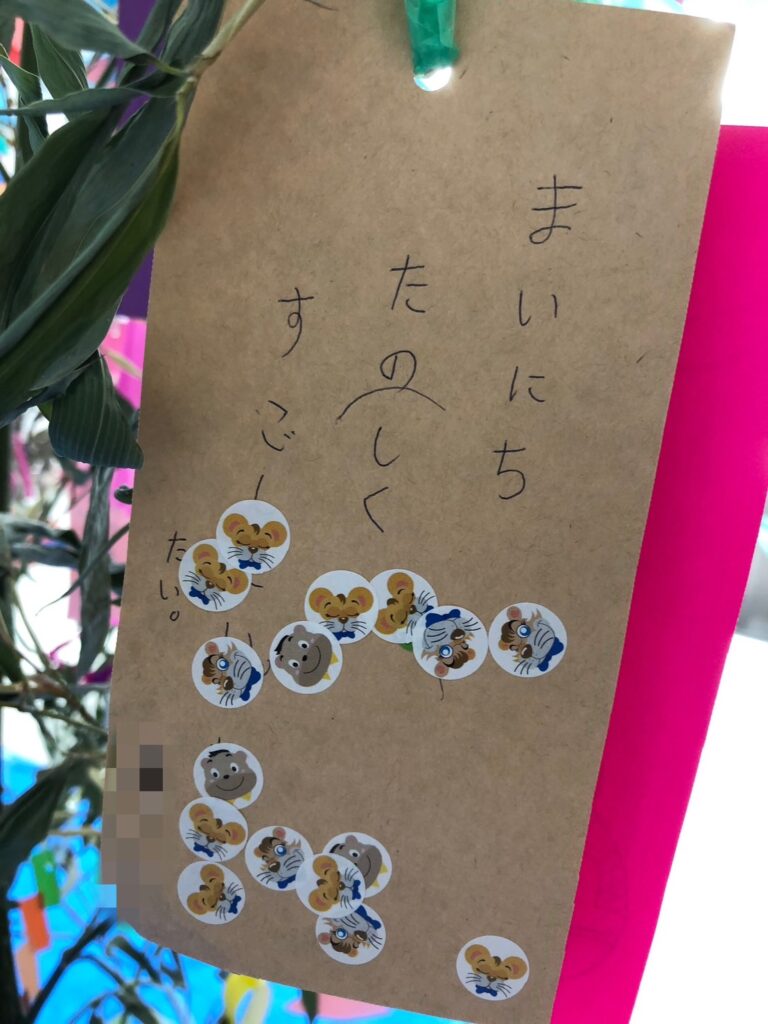 まいにち
たのしく
すご
たい。